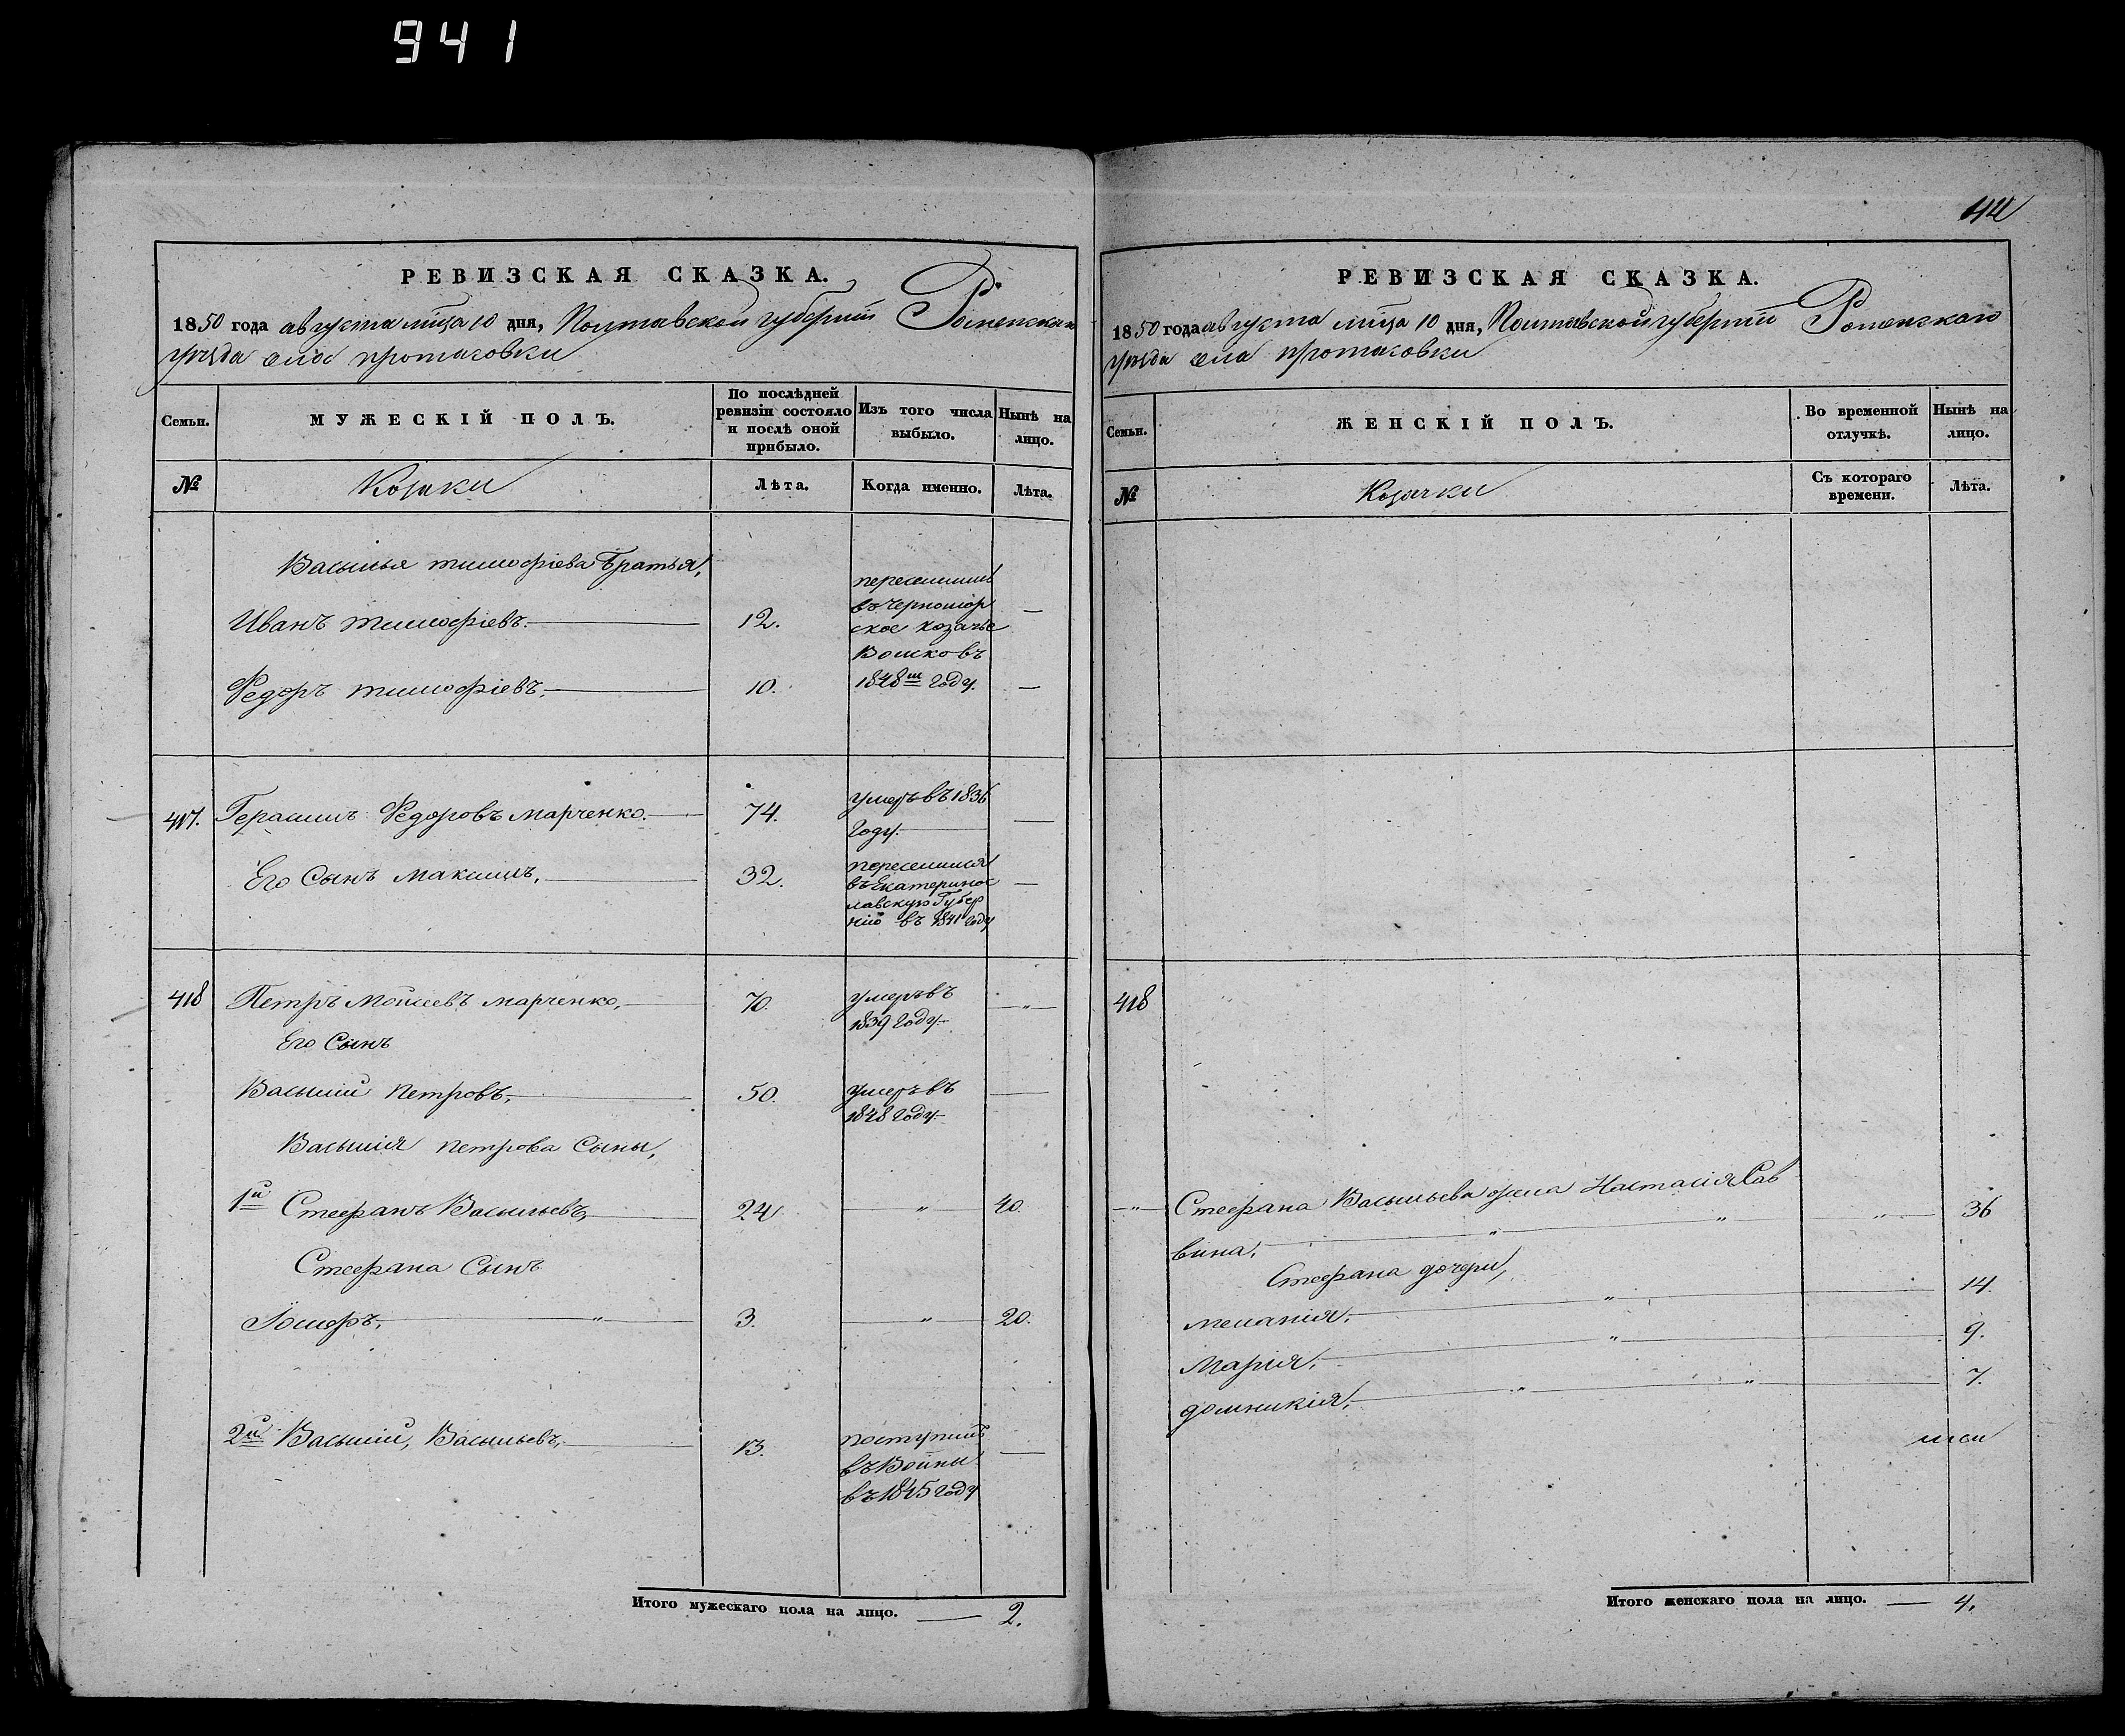 941
РЕВИЗСКАЯ СКАЗКА.
1850 года августа мца 10 дня, Полтавской губерніи Роменскаго
уезда села Протасовки
Семьи.
МУЖЕСКІЙ ПОЛЪ.
По послѣдней
ревизіи состояло
и послѣ оной
прибыло.
Изъ того числа
выбыло.
Нынѣ на
лицо.
№
Козаки
Лѣта.
Когда именно.
Лѣта.
Василья тимофіева Братья,
Иванъ тимофіевъ. 12. —
Федоръ тимофіевъ. 10. —
переселились
въ Черномор
ское козачье
Войско въ
1848м году.
417. Герасимъ Федоровъ Марченко. 74. умеръ въ 1836 —
году.
Его Сынъ Максимъ. 32. переселился —
въ Екатеринос
лавскую Губер
нію въ 1841 году
418 Петръ Моисеевъ Марченко, 70. умеръ въ — „ —
1839 году.
Его Сынъ
Василій Петровъ, 50. умеръ въ —
1848 году.
Василія Петрова Сыны,
1й Стефанъ Васильевъ, 24 „ 40.
Стефана Сынъ
Іосифъ, „ 3. „ 20.
2й Василій, Васильевъ, 13. поступилъ —
въ
въ 1845 году
Итого мужескаго пола на лицо. — 2.
РЕВИЗСКАЯ СКАЗКА.
1850 года августа мца 10 дня, Полтавской губерніи Роменскаго
уезда села Протасовки
Семьи.
ЖЕНСКІЙ ПОЛЪ.
Во временной
отлучкѣ.
Нынѣ на
лицо.
№
Козачки
Съ котораго
времени.
Лѣта.
418
„ Стефана Васильева жена Настасія Сав
вина. „ „ „ 36
Стефана дочери,
Меланія. „ 14.
Марія. „ 9.
домникія. „ „ 7.
Итого женскаго пола на лицо. — 4.